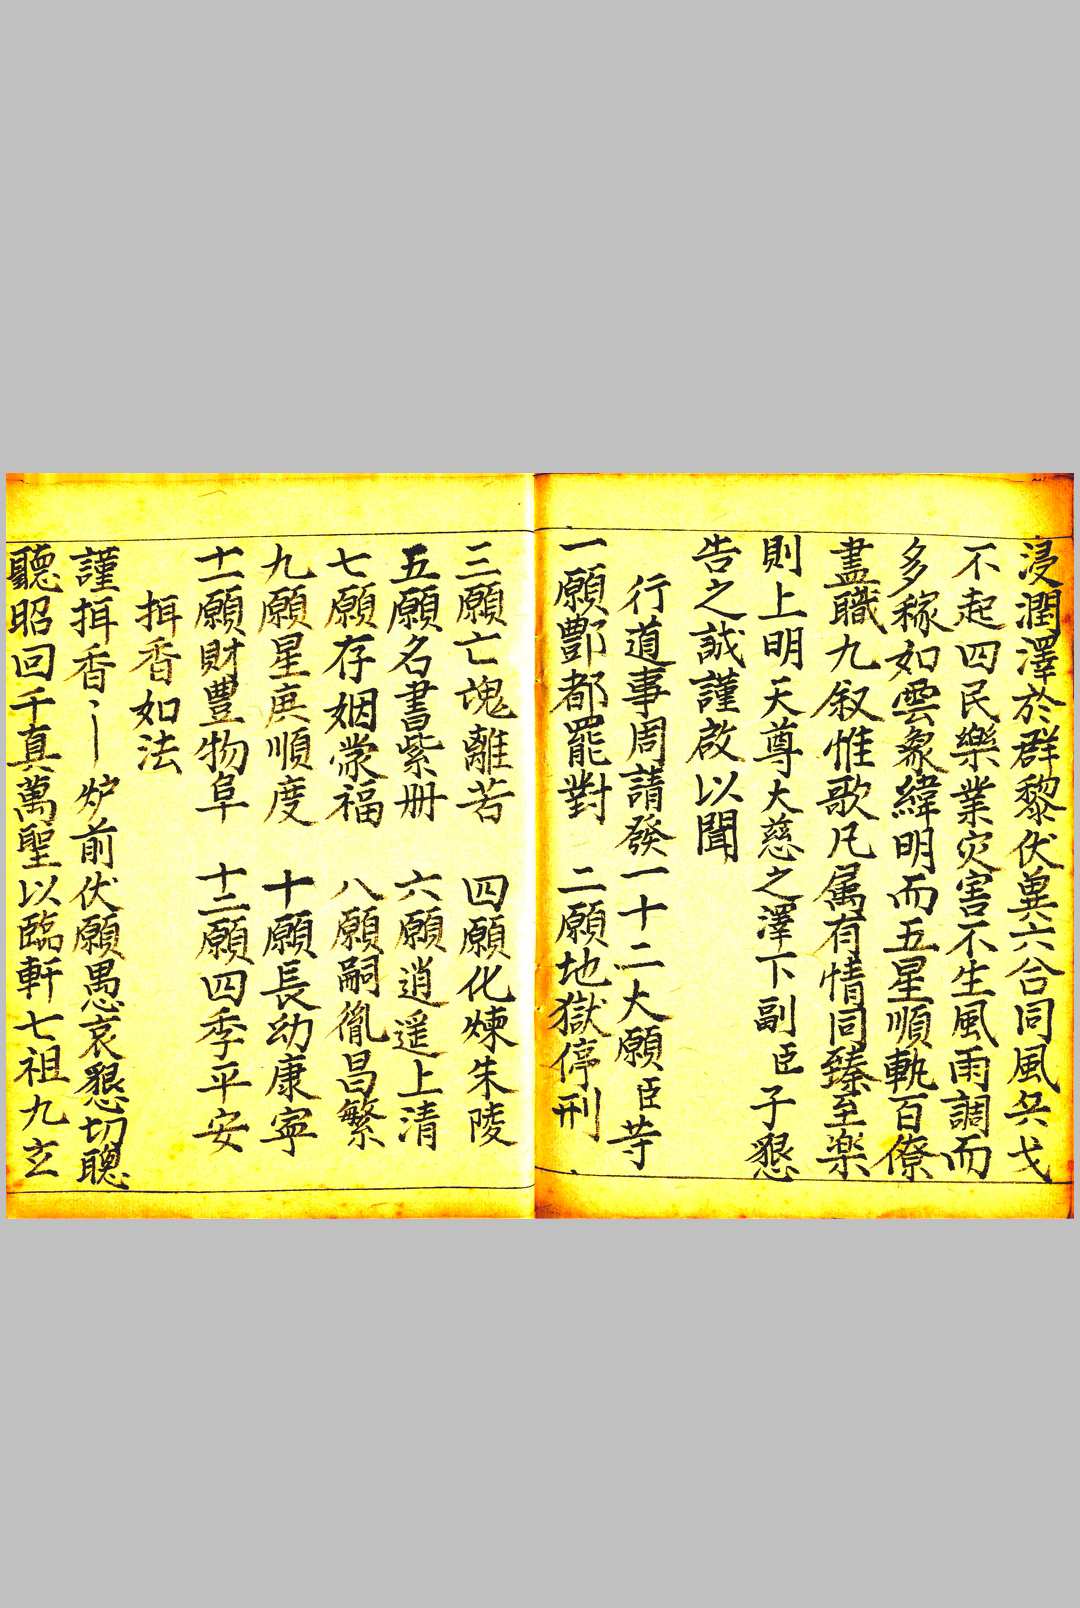 浸潤澤於群黎伏兾六合同風兵戈
不起四民樂業灾害不生風雨調而
多稼如雲象緯明而五星順軌百僚
盡職九叙惟歌凡属有情同臻至楽
則上明天尊大慈之澤下副臣子懇
告之誠謹啟以聞
行道事周請發一十二大願臣等
一願酆都罷對　二願地獄停刑
三願亡魂離苦　四願化煉朱陵
五願名書紫册　六願逍遥上清
七願存姻蒙福　八願嗣胤昌繁
九願星庚順度　十願長幼康寧
十一願財豐物阜　十二願四季平安
揖香如法
謹揖香　炉前伏願愚哀懇切聰
聽昭回千真萬聖以臨軒七祖九玄